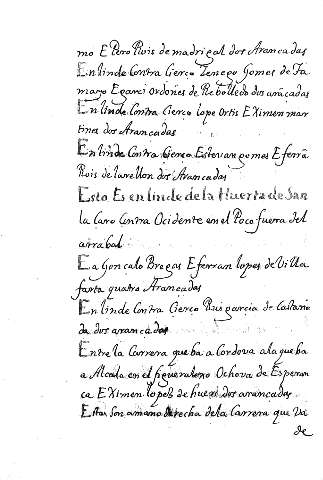 mo E Pero Ruis de madrigal dos Arancadas
En linde Contra Cierco Tenego Gomes de Ta
mayo E garci ordoñes de Rebolledo dos arācadas
En linde Contra Cierco lope ortis E Ximen mar
tines dos Arancadas
En linde Contra Cierco Estevan gomes E ferrā
Ruis de lavellon dos Arancadas
Esto Es en linde de la Huerta de San
la Caro Contra Ocidente en el Poco fuera del
arrabal
E a Goncalo Bregas E ferran lopes de Villa
farta quatro Arancadas
En linde Contra Cierco Ruis garcia de Castane
da dos arancadas
Entre la Carrera que ba a Cordova a la que ba
a Alcala en el figueral eno Ochova de Esperan
ca E Ximen lopes de dos arancadas
Estas son a mano derecha de la Carrera que va
de